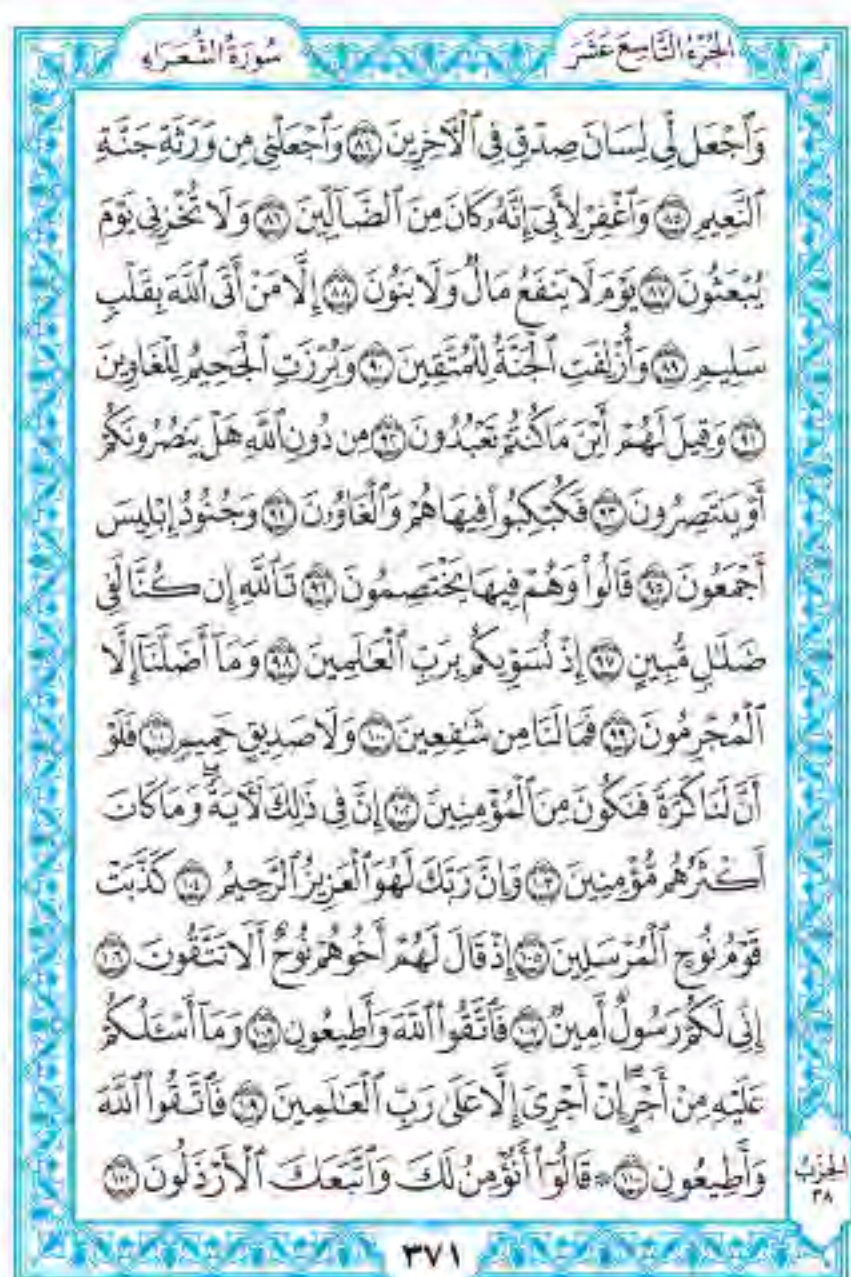 الجُزْءُ التَّاسِعَ عَشَرَ
سُورَةُ الشُّعَرَاءِ
وَٱجۡعَل لِّي لِسَانَ صِدۡقٖ فِي ٱلۡأٓخِرِينَ ٨٤ وَٱجۡعَلۡنِي مِن وَرَثَةِ جَنَّةِ
ٱلنَّعِيمِ ٨٥ وَٱغۡفِرۡ لِأَبِيٓ إِنَّهُۥ كَانَ مِنَ ٱلضَّآلِّينَ ٨٦ وَلَا تُخۡزِنِي يَوۡمَ
يُبۡعَثُونَ ٨٧ يَوۡمَ لَا يَنفَعُ مَالٞ وَلَا بَنُونَ ٨٨ إِلَّا مَنۡ أَتَى ٱللَّهَ بِقَلۡبٖ
سَلِيمٖ ٨٩ وَأُزۡلِفَتِ ٱلۡجَنَّةُ لِلۡمُتَّقِينَ ٩٠ وَبُرِّزَتِ ٱلۡجَحِيمُ لِلۡغَاوِينَ
٩١ وَقِيلَ لَهُمۡ أَيۡنَ مَا كُنتُمۡ تَعۡبُدُونَ ٩٢ مِن دُونِ ٱللَّهِ هَلۡ يَنصُرُونَكُمۡ
أَوۡ يَنتَصِرُونَ ٩٣ فَكُبۡكِبُواْ فِيهَا هُمۡ وَٱلۡغَاوُۥنَ ٩٤ وَجُنُودُ إِبۡلِيسَ
أَجۡمَعُونَ ٩٥ قَالُواْ وَهُمۡ فِيهَا يَخۡتَصِمُونَ ٩٦ تَٱللَّهِ إِن كُنَّا لَفِي
ضَلَٰلٖ مُّبِينٍ ٩٧ إِذۡ نُسَوِّيكُم بِرَبِّ ٱلۡعَٰلَمِينَ ٩٨ وَمَآ أَضَلَّنَآ إِلَّا
ٱلۡمُجۡرِمُونَ ٩٩ فَمَا لَنَا مِن شَٰفِعِينَ ١٠٠ وَلَا صَدِيقٍ حَمِيمٖ ١٠١ فَلَوۡ
أَنَّ لَنَا كَرَّةٗ فَنَكُونَ مِنَ ٱلۡمُؤۡمِنِينَ ١٠٢ إِنَّ فِي ذَٰلِكَ لَأٓيَةٗۖ وَمَا كَانَ
أَكۡثَرُهُم مُّؤۡمِنِينَ ١٠٣ وَإِنَّ رَبَّكَ لَهُوَ ٱلۡعَزِيزُ ٱلرَّحِيمُ ١٠٤ كَذَّبَتۡ
قَوۡمُ نُوحٍ ٱلۡمُرۡسَلِينَ ١٠٥ إِذۡ قَالَ لَهُمۡ أَخُوهُمۡ نُوحٌ أَلَا تَتَّقُونَ ١٠٦
إِنِّي لَكُمۡ رَسُولٌ أَمِينٞ ١٠٧ فَٱتَّقُواْ ٱللَّهَ وَأَطِيعُونِ ١٠٨ وَمَآ أَسۡـَٔلُكُمۡ
عَلَيۡهِ مِنۡ أَجۡرٍۖ إِنۡ أَجۡرِيَ إِلَّا عَلَىٰ رَبِّ ٱلۡعَٰلَمِينَ ١٠٩ فَٱتَّقُواْ ٱللَّهَ
وَأَطِيعُونِ ١١٠ ۞ قَالُوٓاْ أَنُؤۡمِنُ لَكَ وَٱتَّبَعَكَ ٱلۡأَرۡذَلُونَ ١١١
الحِزْبُ
٣٨
٣٧١